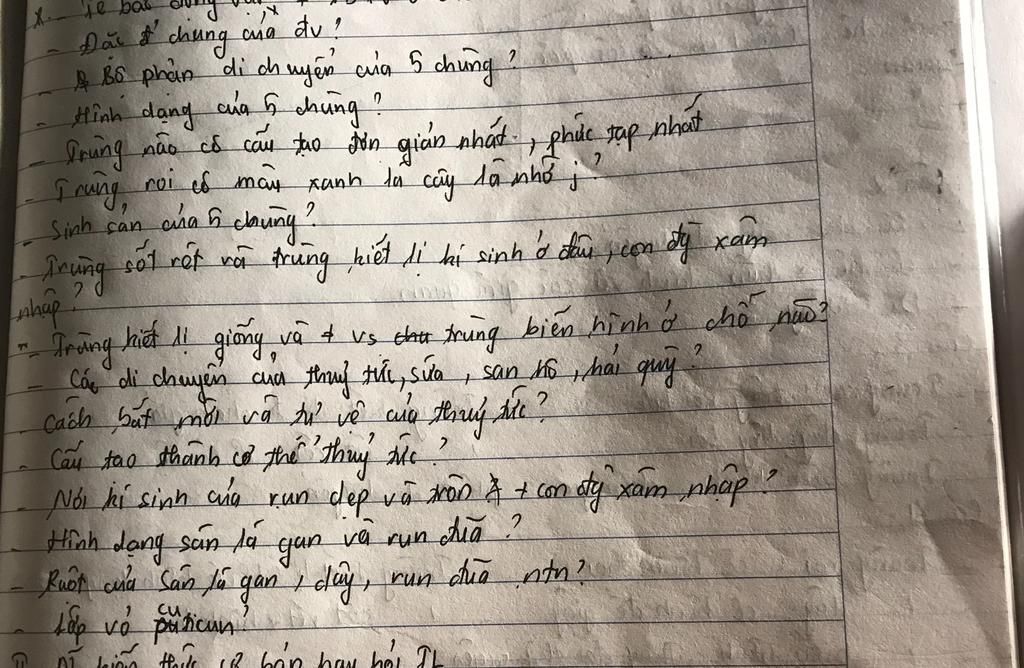 x. Tế bào
- Đặc đ' chung của đv?
- Bộ phận di chuyển của 5 chủng?
- Hình dạng của 5 chủng?
- Trùng nào có cấu tạo đơn giản nhất, phức tạp nhất
- Trùng roi có màu xanh lá cây là nhờ j?
- Sinh sản của 5 chủng?
- Trùng sốt rét và trùng kiết lị kí sinh ở đâu, con đg xâm
nhập?
- Trùng kiết lị giống và ≠ vs trùng biến hình ở chỗ nào?
- Các di chuyển của thuỷ tức, sứa, san hô, hải quỳ?
Cách bắt mồi và tự vệ của thuỷ tức?
- Cấu tạo thành cơ thể thuỷ tức?
- Nơi kí sinh của run dẹp và tròn + con đg xâm nhập?
- Hình dạng sán lá gan và run đũa?
- Ruột của Sán lá gan, dây, run đũa ntn?
- Lớp vỏ cuticun?
kiến thức cơ bản hay hỏi TL